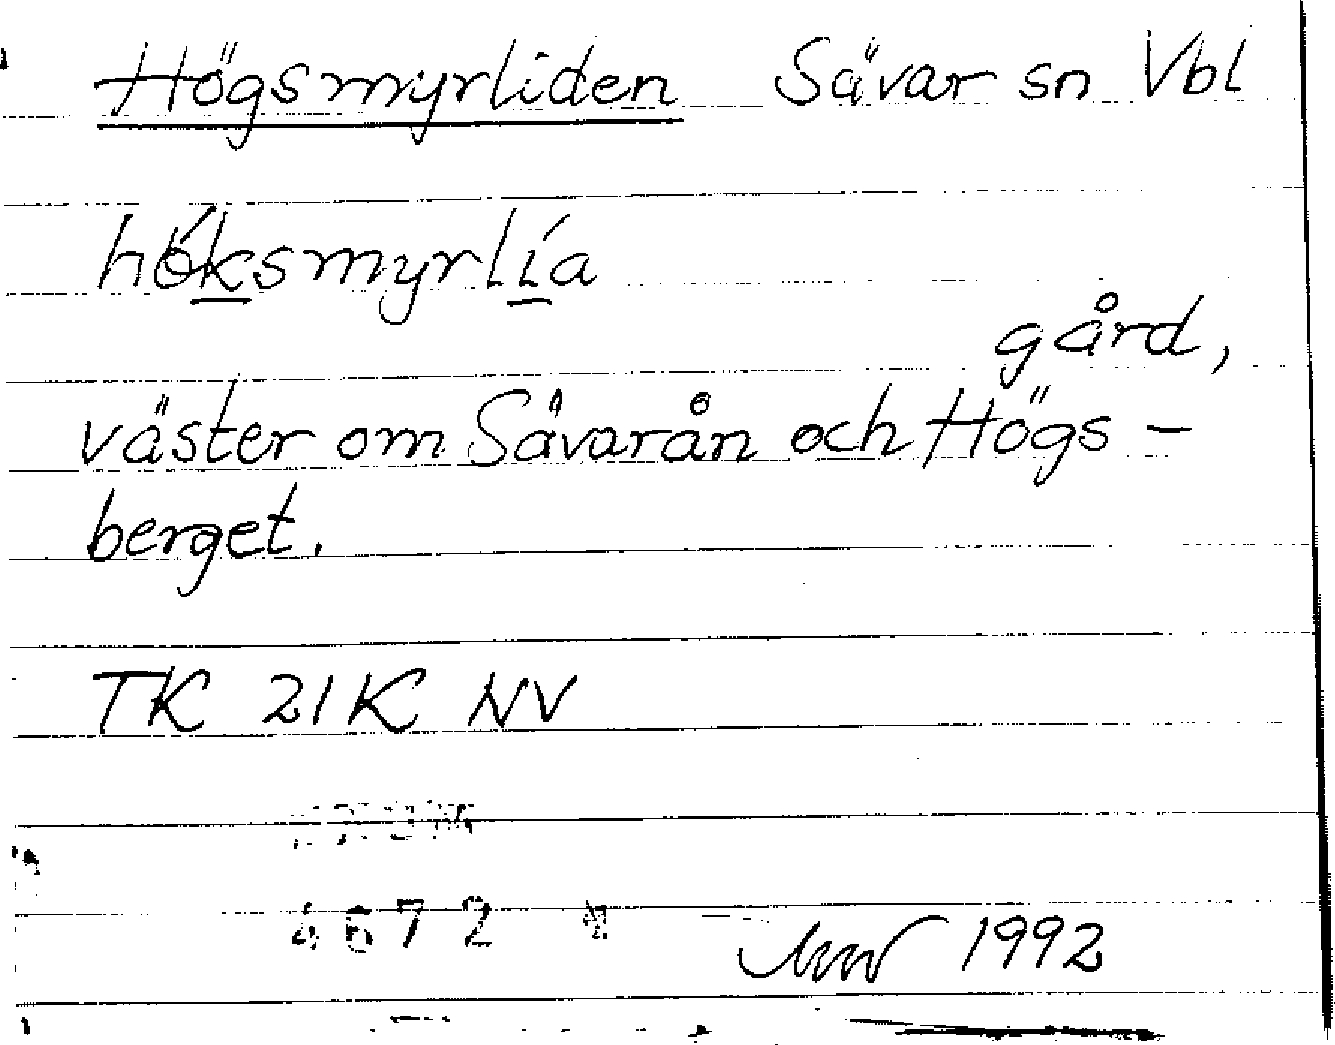 Högsmyrliden Sävar sn Vbl
hóksmyrlía
gård,
väster om Sävarån och Högs-
berget.
TK 21K NV
4672
1992